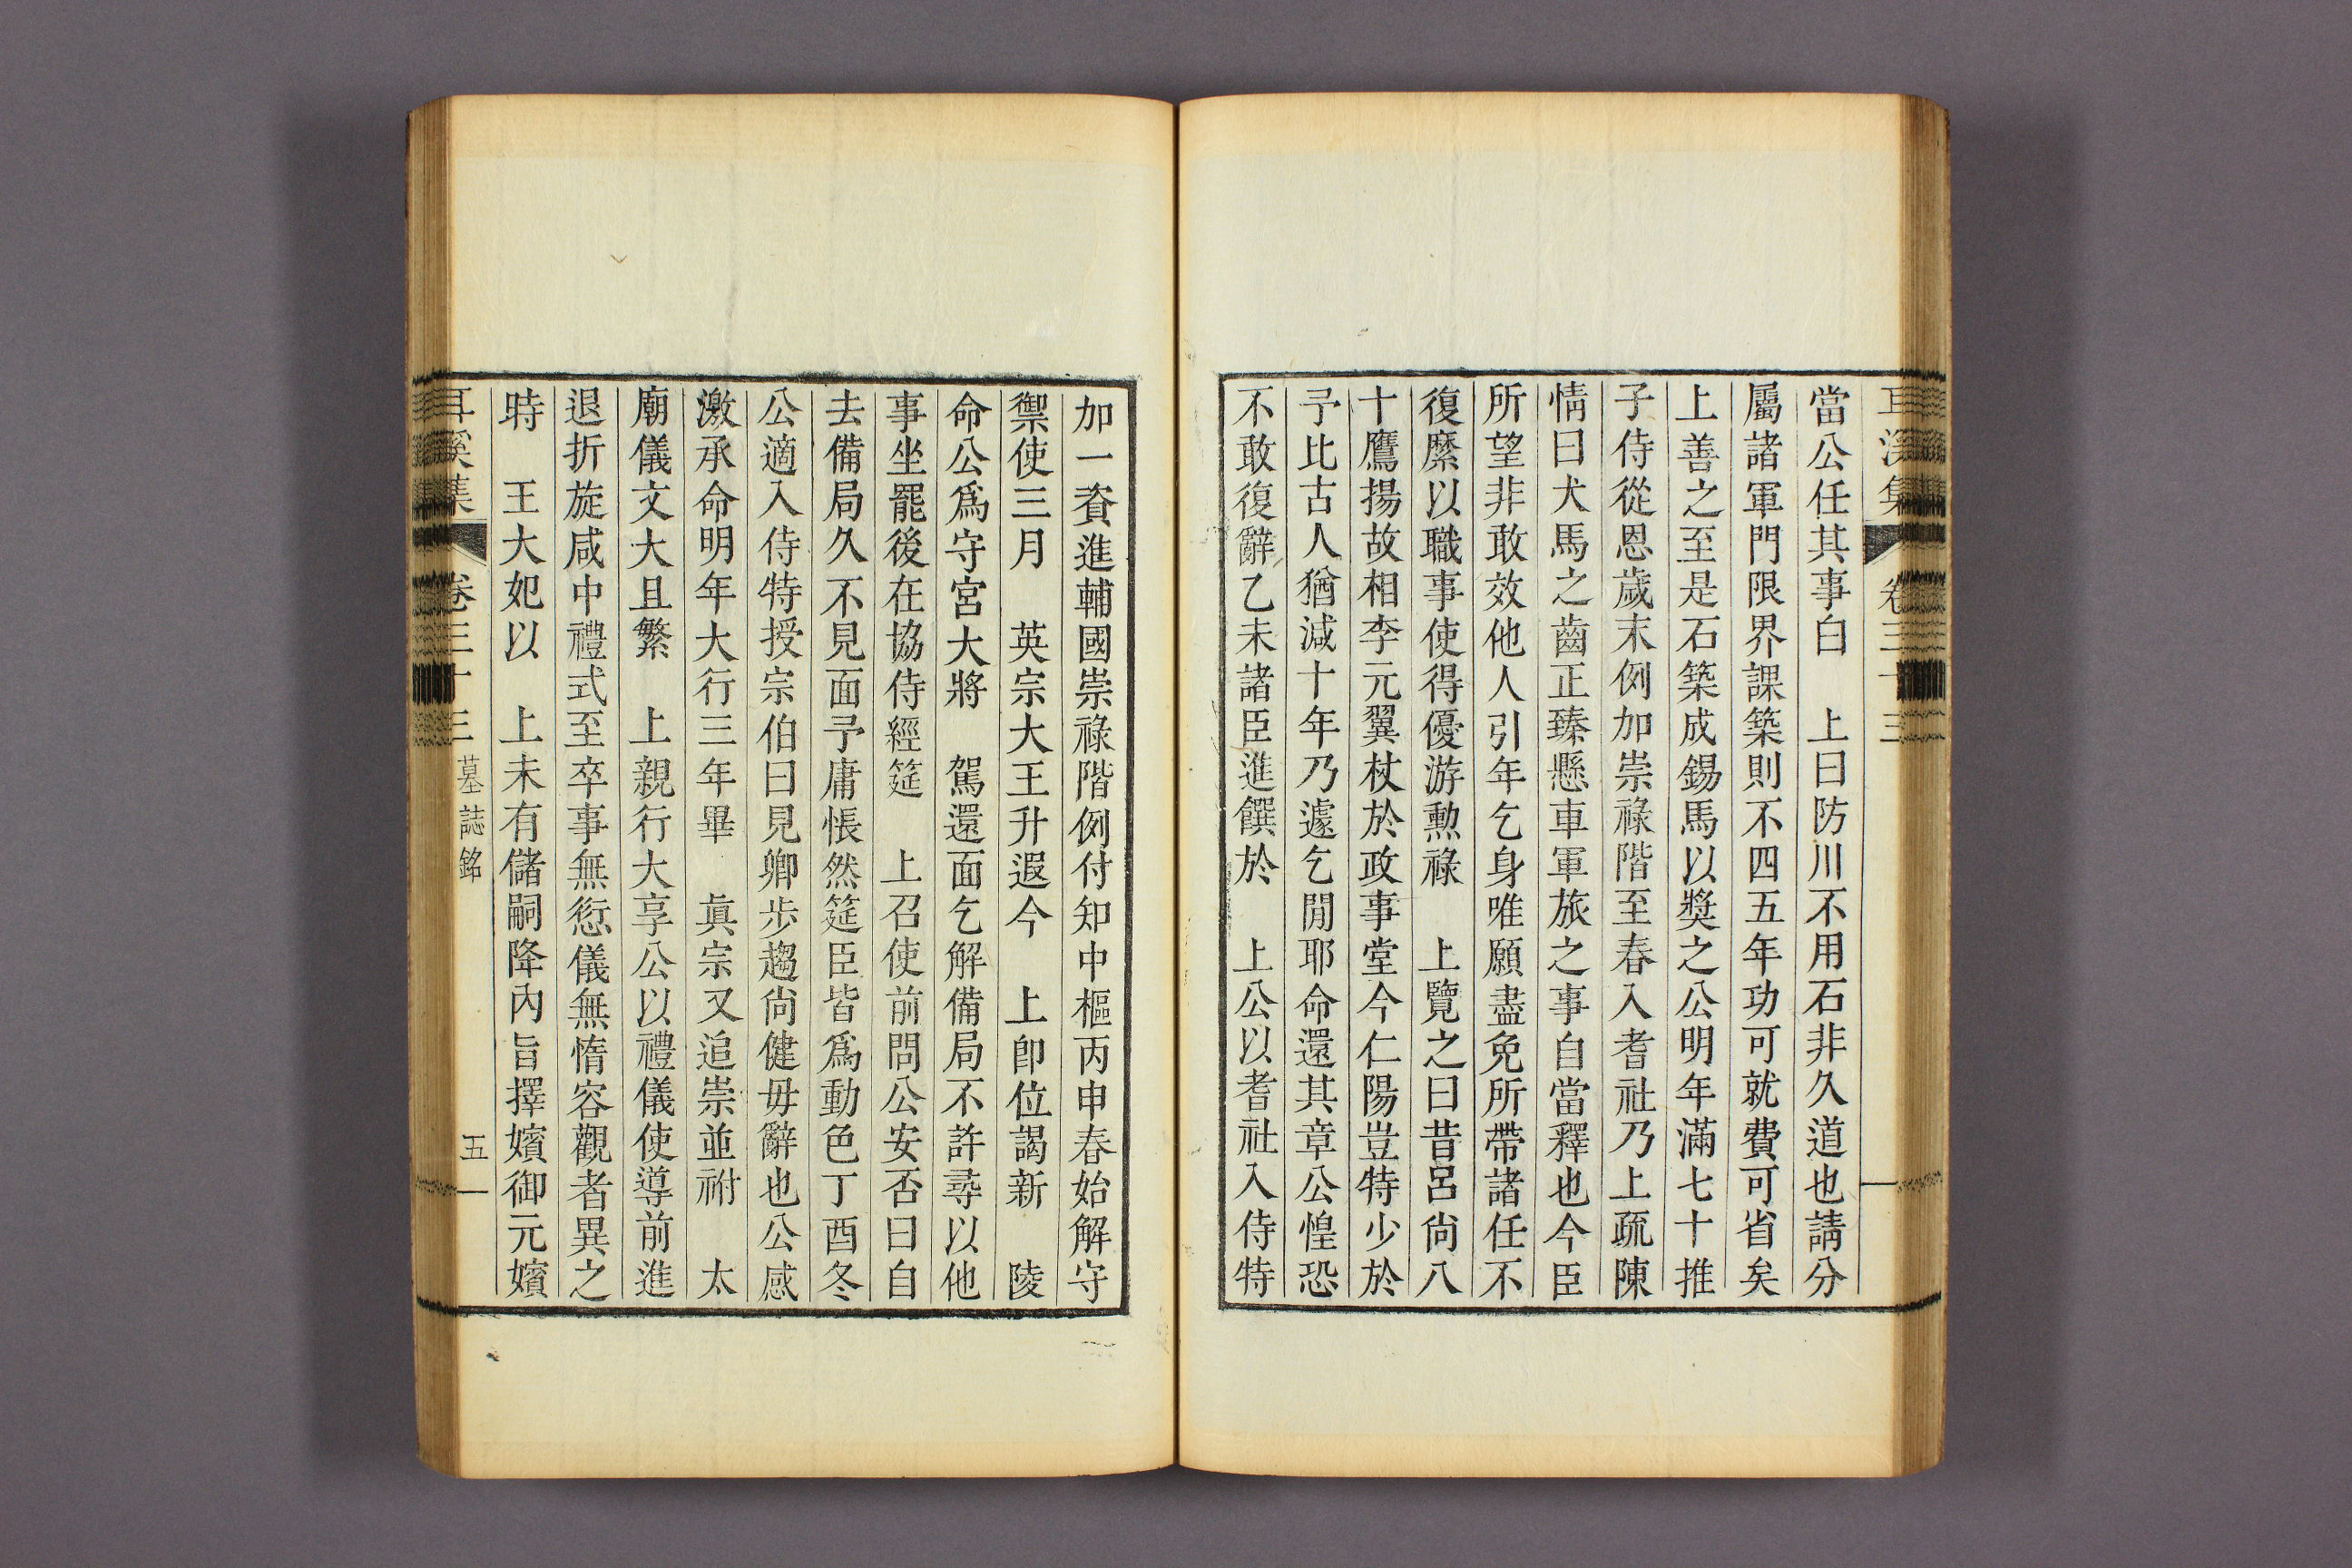 耳溪集 卷三十三
當公任其事白 上曰防川不用石非久道也請分
屬諸軍門限界課築則不四五年功可就費可省矣
上善之至是石築成錫馬以獎之公明年滿七十推
子侍從恩歲末例加崇祿階至春入耆社乃上疏陳
情曰犬馬之齒正臻懸車軍旅之事自當釋也今臣
所望非敢效他人引年乞身唯願盡免所帶諸任不
復縻以職事使得優游勲祿 上覽之曰昔呂尙八
十鷹揚故相李元翼杖於政事堂今仁陽豈特少於
予比古人猶減十年乃遽乞閒耶命還其章公惶恐
不敢復辭乙未諸臣進饌於 上公以耆社入侍特
加一資進輔國崇祿階例付知中樞丙申春始解守
禦使三月 英宗大王升遐今 上卽位謁新 陵
命公爲守宮大將 駕還面乞解備局不許尋以他
事坐罷後在協侍經筵 上召使前問公安否曰自
去備局久不見面予庸悵然筵臣皆爲動色丁酉冬
公適入侍特授宗伯曰見卿步趨尙健毋辭也公感
激承命明年大行三年畢 眞宗又追崇並祔 太
廟儀文大且繁 上親行大享公以禮儀使導前進
退折旋咸中禮式至卒事無愆儀無惰容觀者異之
時 王大妃以 上未有儲嗣降內旨擇嬪御元嬪
耳溪集 卷三十三 墓誌銘 五